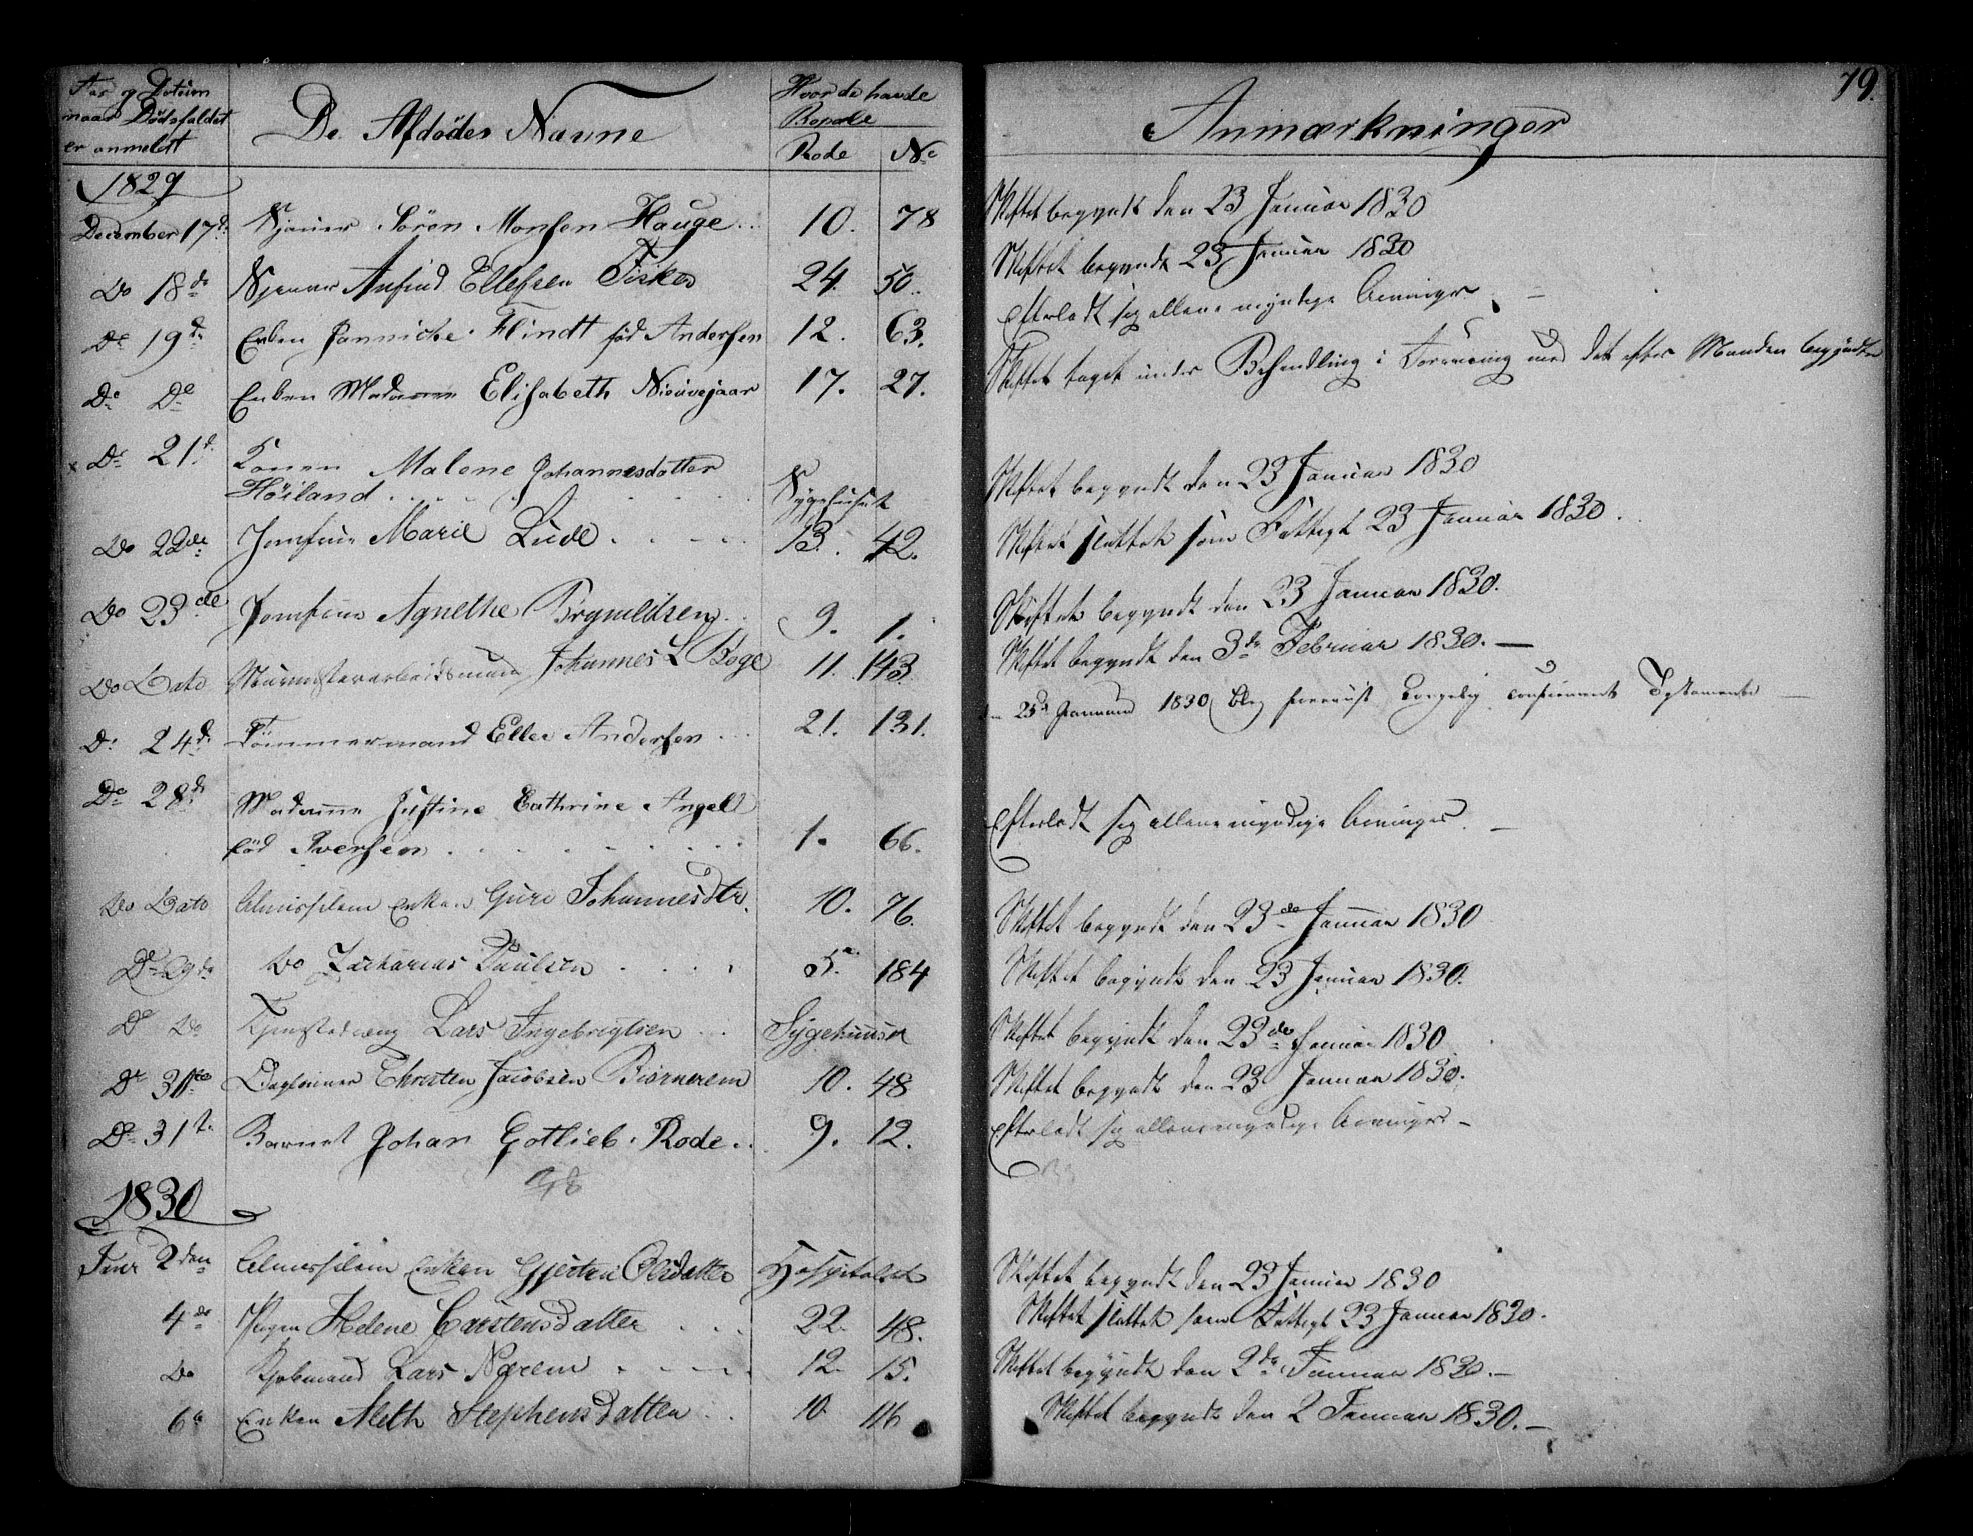 79.
Aar og Datum
naar Dødsfaldet
er anmeldt
De Afdødes Navne
Hvor de havde
Bopæle
Rode No
Anmærkninger
1829
December 17d. Sjouer Sören Monsen Hauge .. 10. 78 Skiftet begyndt den 23 Januar 1830
Do 18de Anfind Ellefsen Fisker 24. 50. Skiftet begyndt 23 Januar 1830
Do 19d. Enken Jannicke Flindt fød Andersen 12. 63. Efterladt sig allene myndige Arvinger. —
Do Do Enken Madame Elisabeth Nieuvejaar 17. 27. Skiftet taget under Behandling i Forening med det efter Manden begyndte
x Do 21d. Konen Malene Johannesdatter
Höiland . . . . Sygehuset Skiftet begyndt den 23 Januar 1830
Do 22de Jomfrue Marie Lude . . . . 13. 42. Skiftet sluttet som Fattigt 23 Januar 1830.
Do 23de Jomfrue Agnethe Brynildsen . . 9. 1. Skiftet begyndt den 23 Januar 1830.
Do Dato Muurmesterarbeidsmand Johannes L Böge 11. 143. Skiftet begyndt den 3de Februar 1830. —
Do 24d. Tömmermand Elle Andersen ... 21. 131. 25d Januar 1830 blev foreviist confirmeret Testamente —
Do 28d. Madamme Justine Cathrine Angell
fød Iversen . . . . . 1. 66. Efterladt sig allene myndige Arvinger. —
Do Dato Almisselem Enken Guri Johannesdtr. 10. 76. Skiftet begyndt den 23de Januar 1830
Do 29de Do Zacharias Paulsen . . . . 5. 184 Skiftet begyndt den 23 Januar 1830.
Do Do Tjenestedreng Lars Ingebrigtsen .. Sygehuuset Skiftet begyndt den 23de Januar 1830
Do 30te Christen Jacobsen Biørnerem 10. 48 Skiftet begyndt den 23 Januar 1830.
Do 31t. Barnet Johan Gotlieb Rode .. 9. 12. Efterladt sig allene myndige Arvinger —
1830
Janr 2den Almisselem Enken Gjertru Olsdatter Hospitalet Skiftet begyndt den 23 Januar 1830
4de Pigen Helene Carstensdatter . . . 22. 48. Skiftet sluttet som Fattigt 23 Januar 1830.
Do Kjøbmand Lars Nærem . . . . 12. 15. Skiftet begyndt den 2de Januar 1830. —
6te Enken Aleth Stephensdatter . . 10. 116 Skiftet begyndt den 2 Januar 1830. —